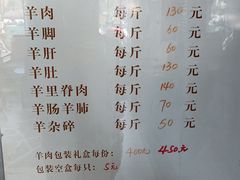 羊肉 每斤 130 元
羊脚 每斤 60 元
羊肝 每斤 60 元
羊肚 每斤 130 元
羊里脊肉 每斤 140 元
羊肠羊肺 每斤 70 元
羊杂碎 每斤 50 元
羊肉包装礼盒每份: 450元
包装空盒每只: 5元